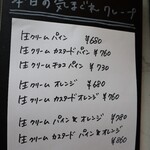 本日の気まぐれクレープ
生クリーム パイン ¥680
生クリーム カスタード パイン ¥760
生クリーム チョコ パイン ¥730
生クリーム オレンジ ¥680
生クリーム カスタード オレンジ ¥760
生クリーム パイン & オレンジ ¥780
生クリーム カスタード パイン & オレンジ ¥860